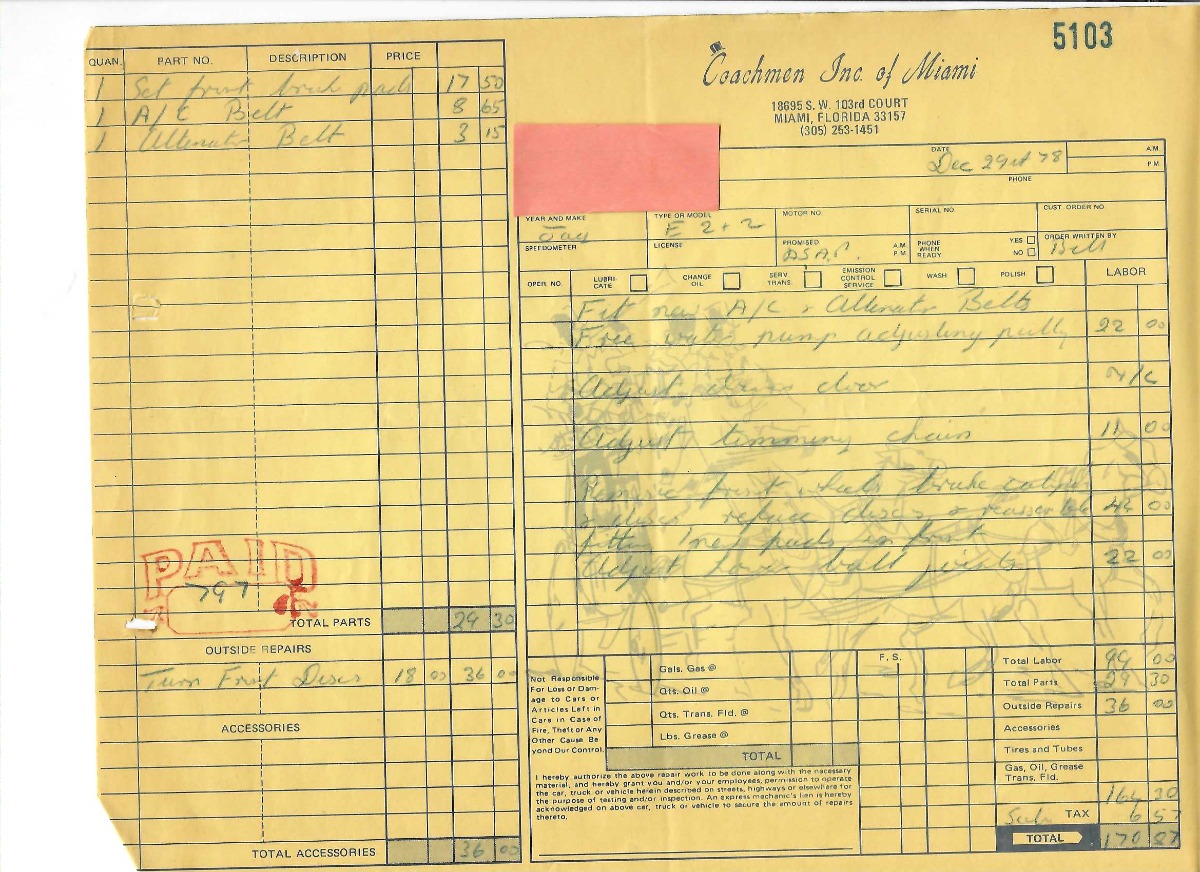 5103
Coachmen Inc. of Miami
18695 S. W. 103rd COURT
MIAMI, FLORIDA 33157
(305) 253-1451
QUAN. PART NO. DESCRIPTION PRICE
1 Set front pads 17 50
1 A/C Belt 8 65
1 Alternator Belt 3 15
PAID
797
TOTAL PARTS 29 30
OUTSIDE REPAIRS
Turn Front Discs 18 00 36 00
ACCESSORIES
TOTAL ACCESSORIES 36 00
DATE Dec 29 78 A.M.
P.M.
PHONE
YEAR AND MAKE Jag TYPE OR MODEL E 2+2 MOTOR NO. SERIAL NO. CUST. ORDER NO.
SPEEDOMETER LICENSE PROMISED A.S.A.P. A.M. P.M. PHONE WHEN READY YES NO ORDER WRITTEN BY
OPER. NO. LUBRI-CATE CHANGE OIL SERV. TRANS. EMISSION CONTROL SERVICE WASH POLISH LABOR
Fit new A/C & Alternator Belts
Free water pump adjusting pully 22 00
Adjust door N/C
Adjust timming chain 11 00
Remove front wheels, brake
reface discs & 44 00
new pads in front
Adjust lower ball joints 22 00
Not Responsible
For Loss or Dam-
age to Cars or
Articles Left in
Cars in Case of
Fire, Theft or Any
Other Cause Be-
yond Our Control.
Gals. Gas @
Qts. Oil @
Qts. Trans. Fld. @
Lbs. Grease @
TOTAL
F. S.
I hereby authorize the above repair work to be done along with the necessary
material, and hereby grant you and/or your employees, permission to operate
the car, truck or vehicle herein described on streets, highways or elsewhere for
the purpose of testing and/or inspection. An express mechanic's lien is hereby
acknowledged on above car, truck or vehicle to secure the amount of repairs
thereto.
Total Labor 99 00
Total Parts 29 30
Outside Repairs 36 00
Accessories
Tires and Tubes
Gas, Oil, Grease
Trans. Fld.
164 30
TAX 6 57
TOTAL 170 87